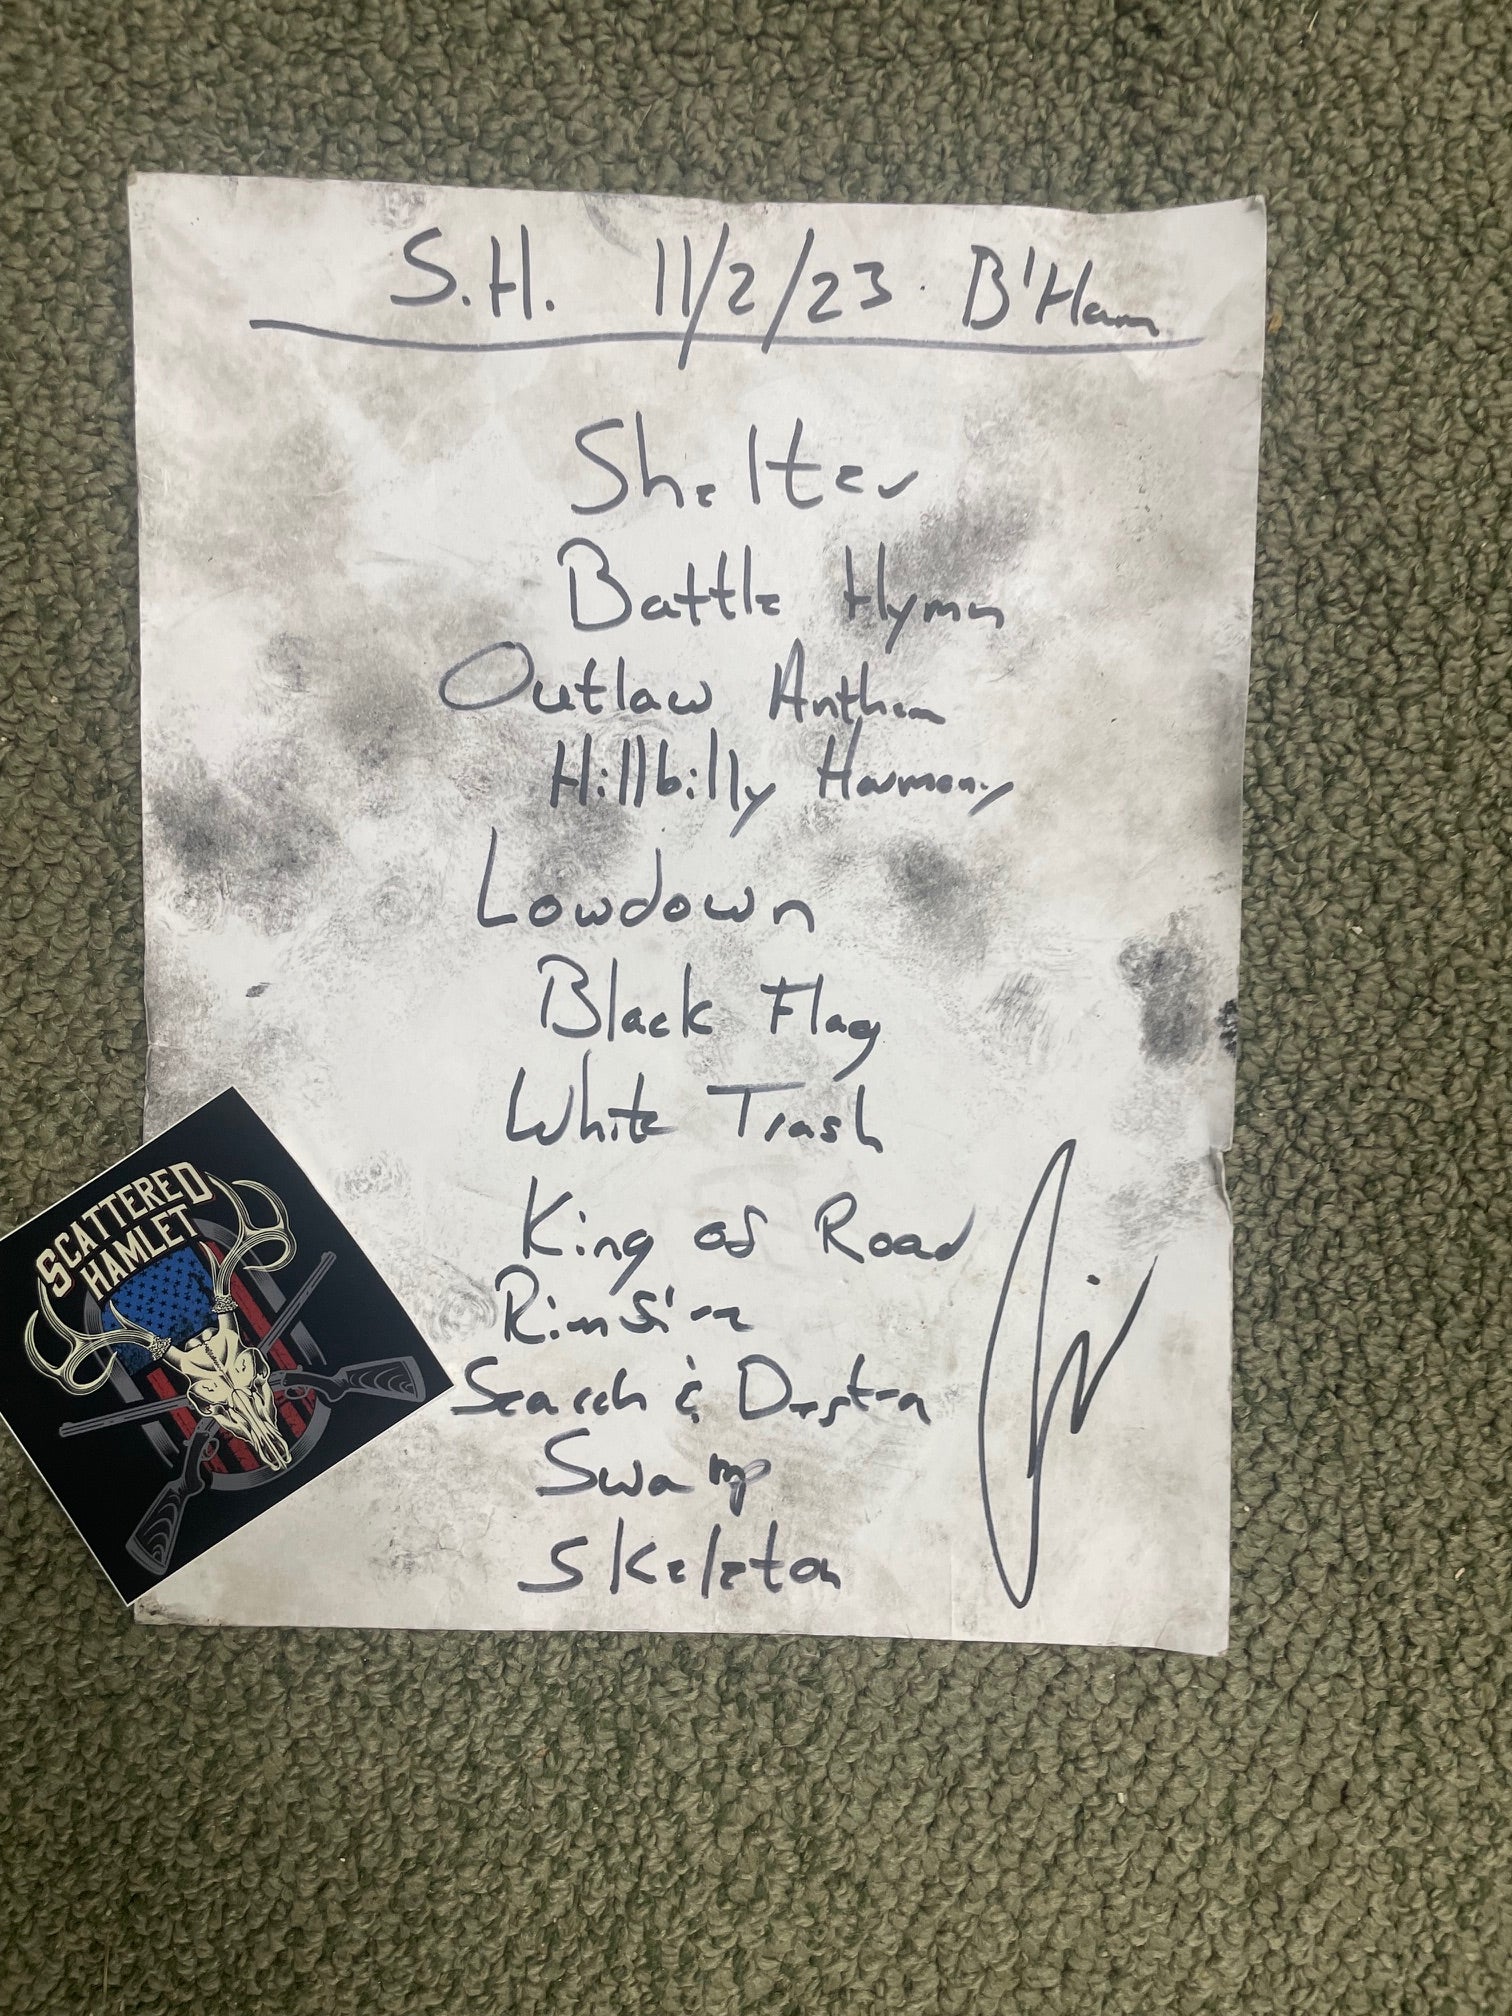 S.H. 11/2/23 B'Ham
Shelter
Battle Hymn
Outlaw Anthem
Hillbilly Harmony
Lowdown
Black Flag
White Trash
King of Road
Search & Destroy
Swamp
Skeleton
SCATTERED
HAMLET